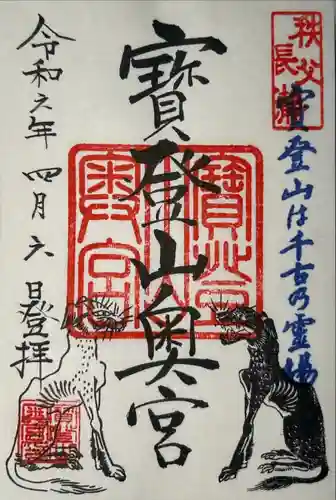 秩父
長瀞
宝登山は千古の霊場
寶登山奥宮
令和六年四月六日登拝